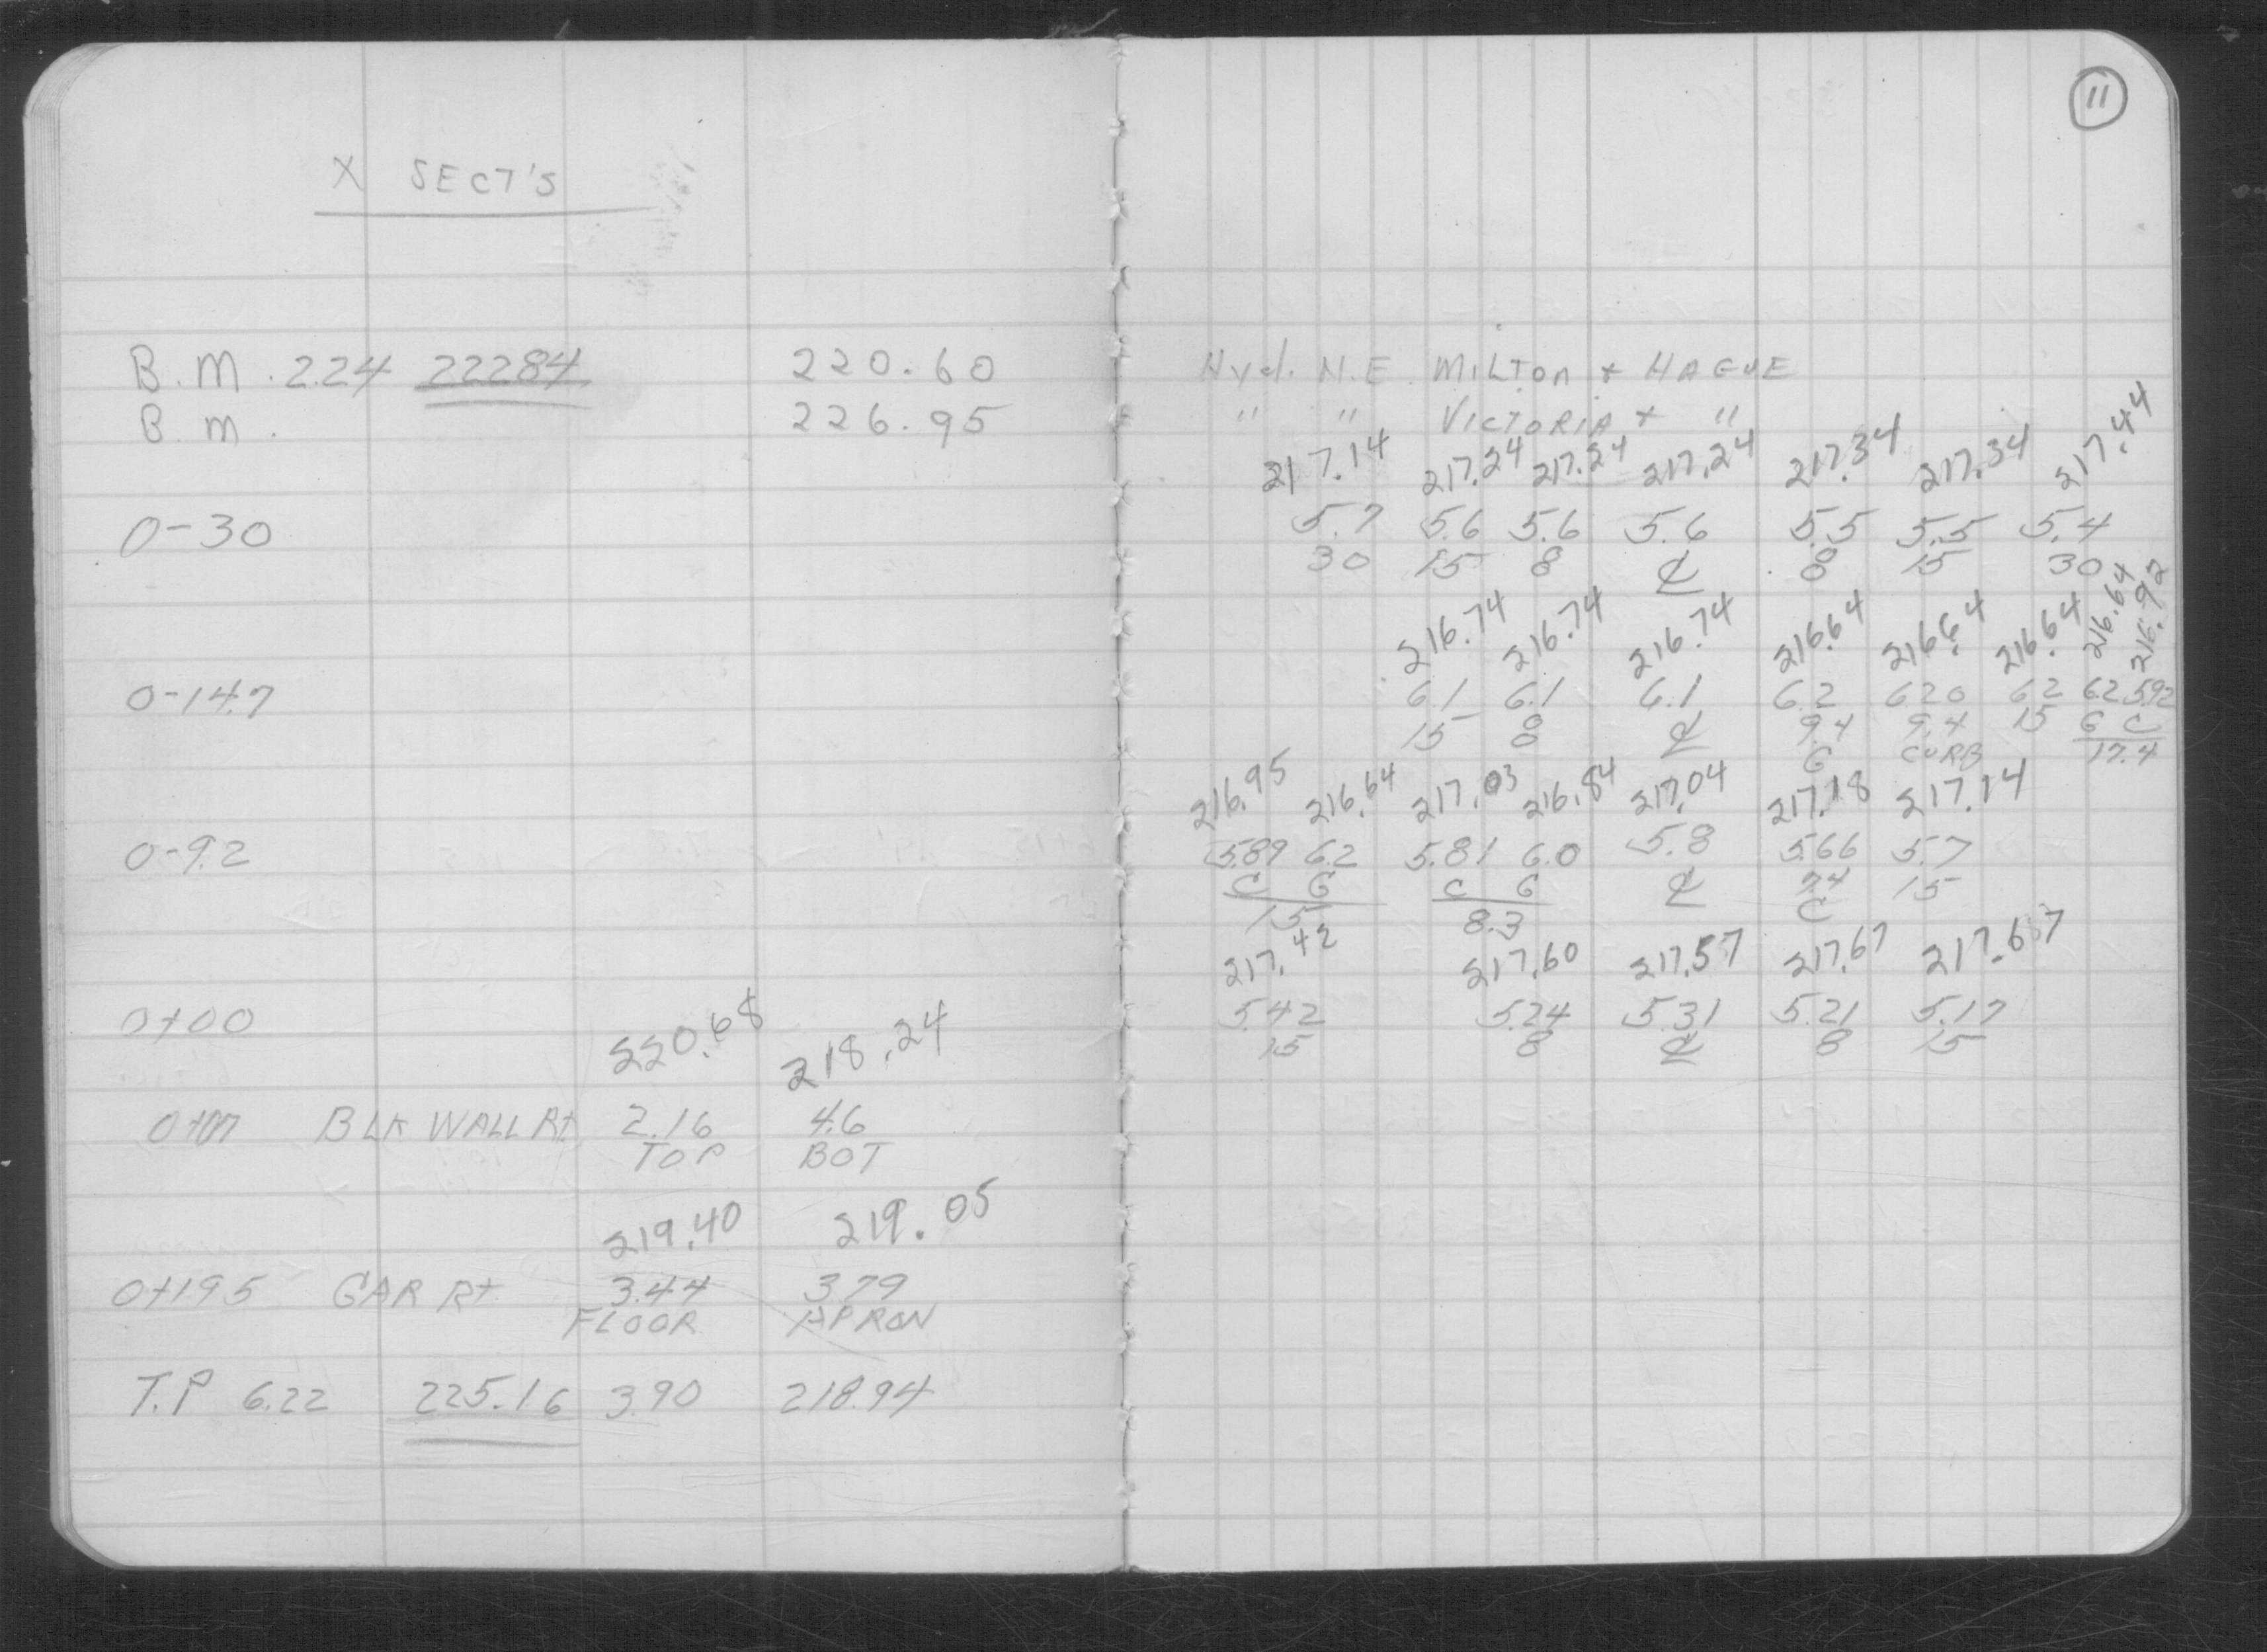 11
X SECT'S
B.M. 2.24 222.84 220.60 Hyd. N.E. MILTON & HAGUE
B.M. 226.95 " " VICTORIA & "
217.14 217.24 217.24 217.24 217.34 217.34 217.44
0-30 5.7 5.6 5.6 5.6 5.5 5.5 5.4
30 15 8 ℄ 8 15 30
216.74 216.74 216.74 216.64 216.64 216.64 216.64 216.92
0-14.7 6.1 6.1 6.1 6.2 6.20 6.2 6.2 5.92
15 8 ℄ 9.4 9.4 15 G C
G CURB 17.4
216.95 216.64 217.03 216.84 217.04 217.18 217.14
0-9.2 5.89 6.2 5.81 6.0 5.8 5.66 5.7
C G C G ℄ 7.4 15
15 8.3 C
217.42 217.60 217.57 217.67 217.67
0+00 5.42 5.24 5.31 5.21 5.17
15 8 ℄ 8 15
220.68 218.24
0+07 BLK WALL Rt 2.16 4.6
TOP BOT
219.40 219.05
0+19.5 GAR Rt 3.44 3.79
FLOOR APRON
T.P 6.22 225.16 3.90 218.94